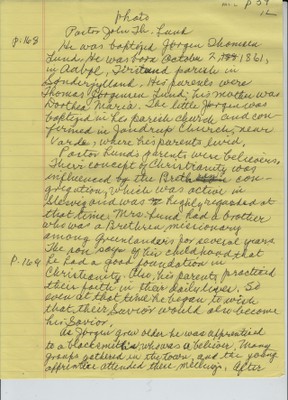 m. p 39
photo
p. 168 Pastor John Th. Lund
He was baptized Jørgen Thomsen
Lund. He was born October 2, 1861,
in Aabøl, parish in
Sønderjylland. His parents were
Thomas Jørgensen Lund; his mother was
Dorthea Maria. The little Jørgen was
baptized in the parish church and con-
firmed in Jandrup Church, near
Varde, where his parents lived.
Pastor Lund's parents were believers.
Their concept of Christianity was
influenced by the Breth con-
gregation, which was active in
Slesvig and was highly regarded at
that time. Mrs. Lund had a brother
who was a Brethren missionary
among Greenlanders for several years.
The son says of his childhood that
p. 169 he had a good foundation in
Christianity. Also, his parents practiced
their faith in their daily lives. So
even at that time he began to wish
that their Savior would also become
his Savior.
As Jørgen grew older he was apprenticed
to a blacksmith who was a believer. Many
groups gathered in the town, and the young
apprentice attended these meetings. After